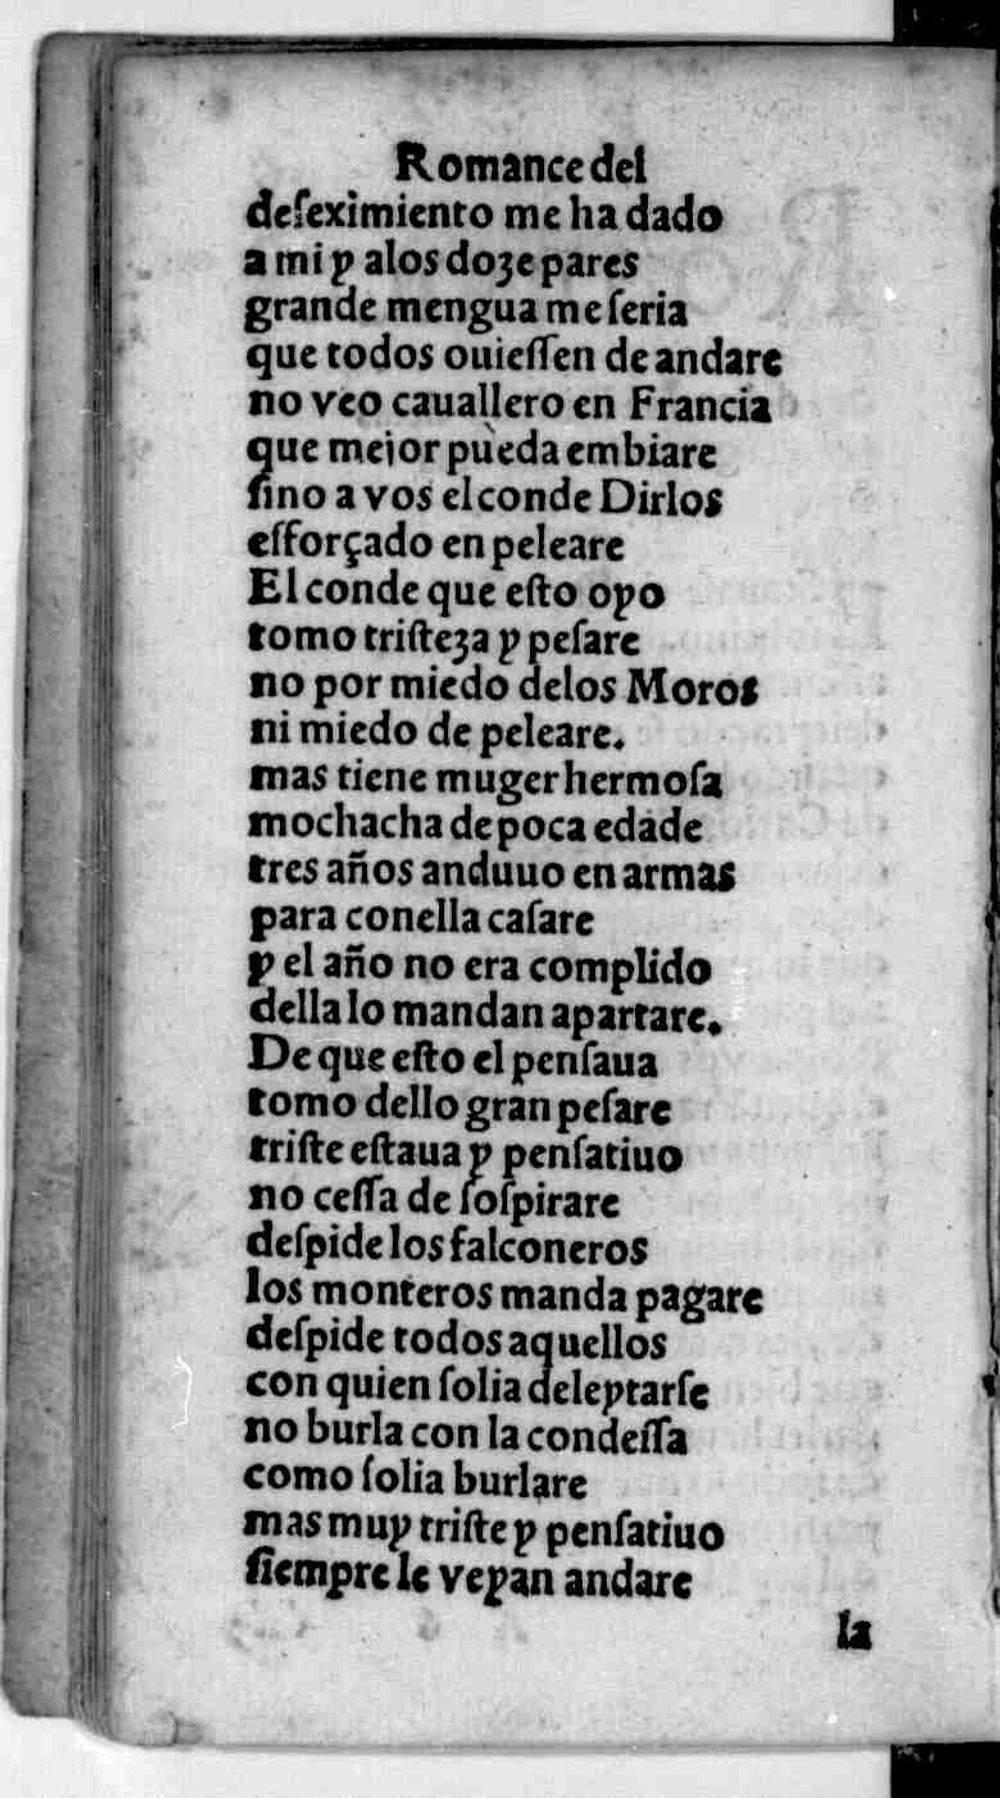 Romance del
deſeximiento me ha dado
a mi y alos doze pares
grande mengua me ſeria
que todos ouieſſen de andare
no veo cauallero en Francia
que mejor pueda embiare
ſino a vos el conde Dirlos
eſforçado en peleare
El conde que eſto oyo
tomo triſteza y peſare
no por miedo delos Moros
ni miedo de peleare.
mas tiene muger hermoſa
mochacha de poca edade
tres años anduuo en armas
para conella caſare
y el año no era complido
della lo mandan apartare.
De que eſto el penſaua
tomo dello gran peſare
triſte eſtaua y penſatiuo
no ceſſa de ſoſpirare
deſpide los falconeros
los monteros manda pagare
deſpide todos aquellos
con quien ſolia deleytarſe
no burla con la condeſſa
como ſolia burlare
mas muy triſte y penſatiuo
ſiempre le veyan andare
la